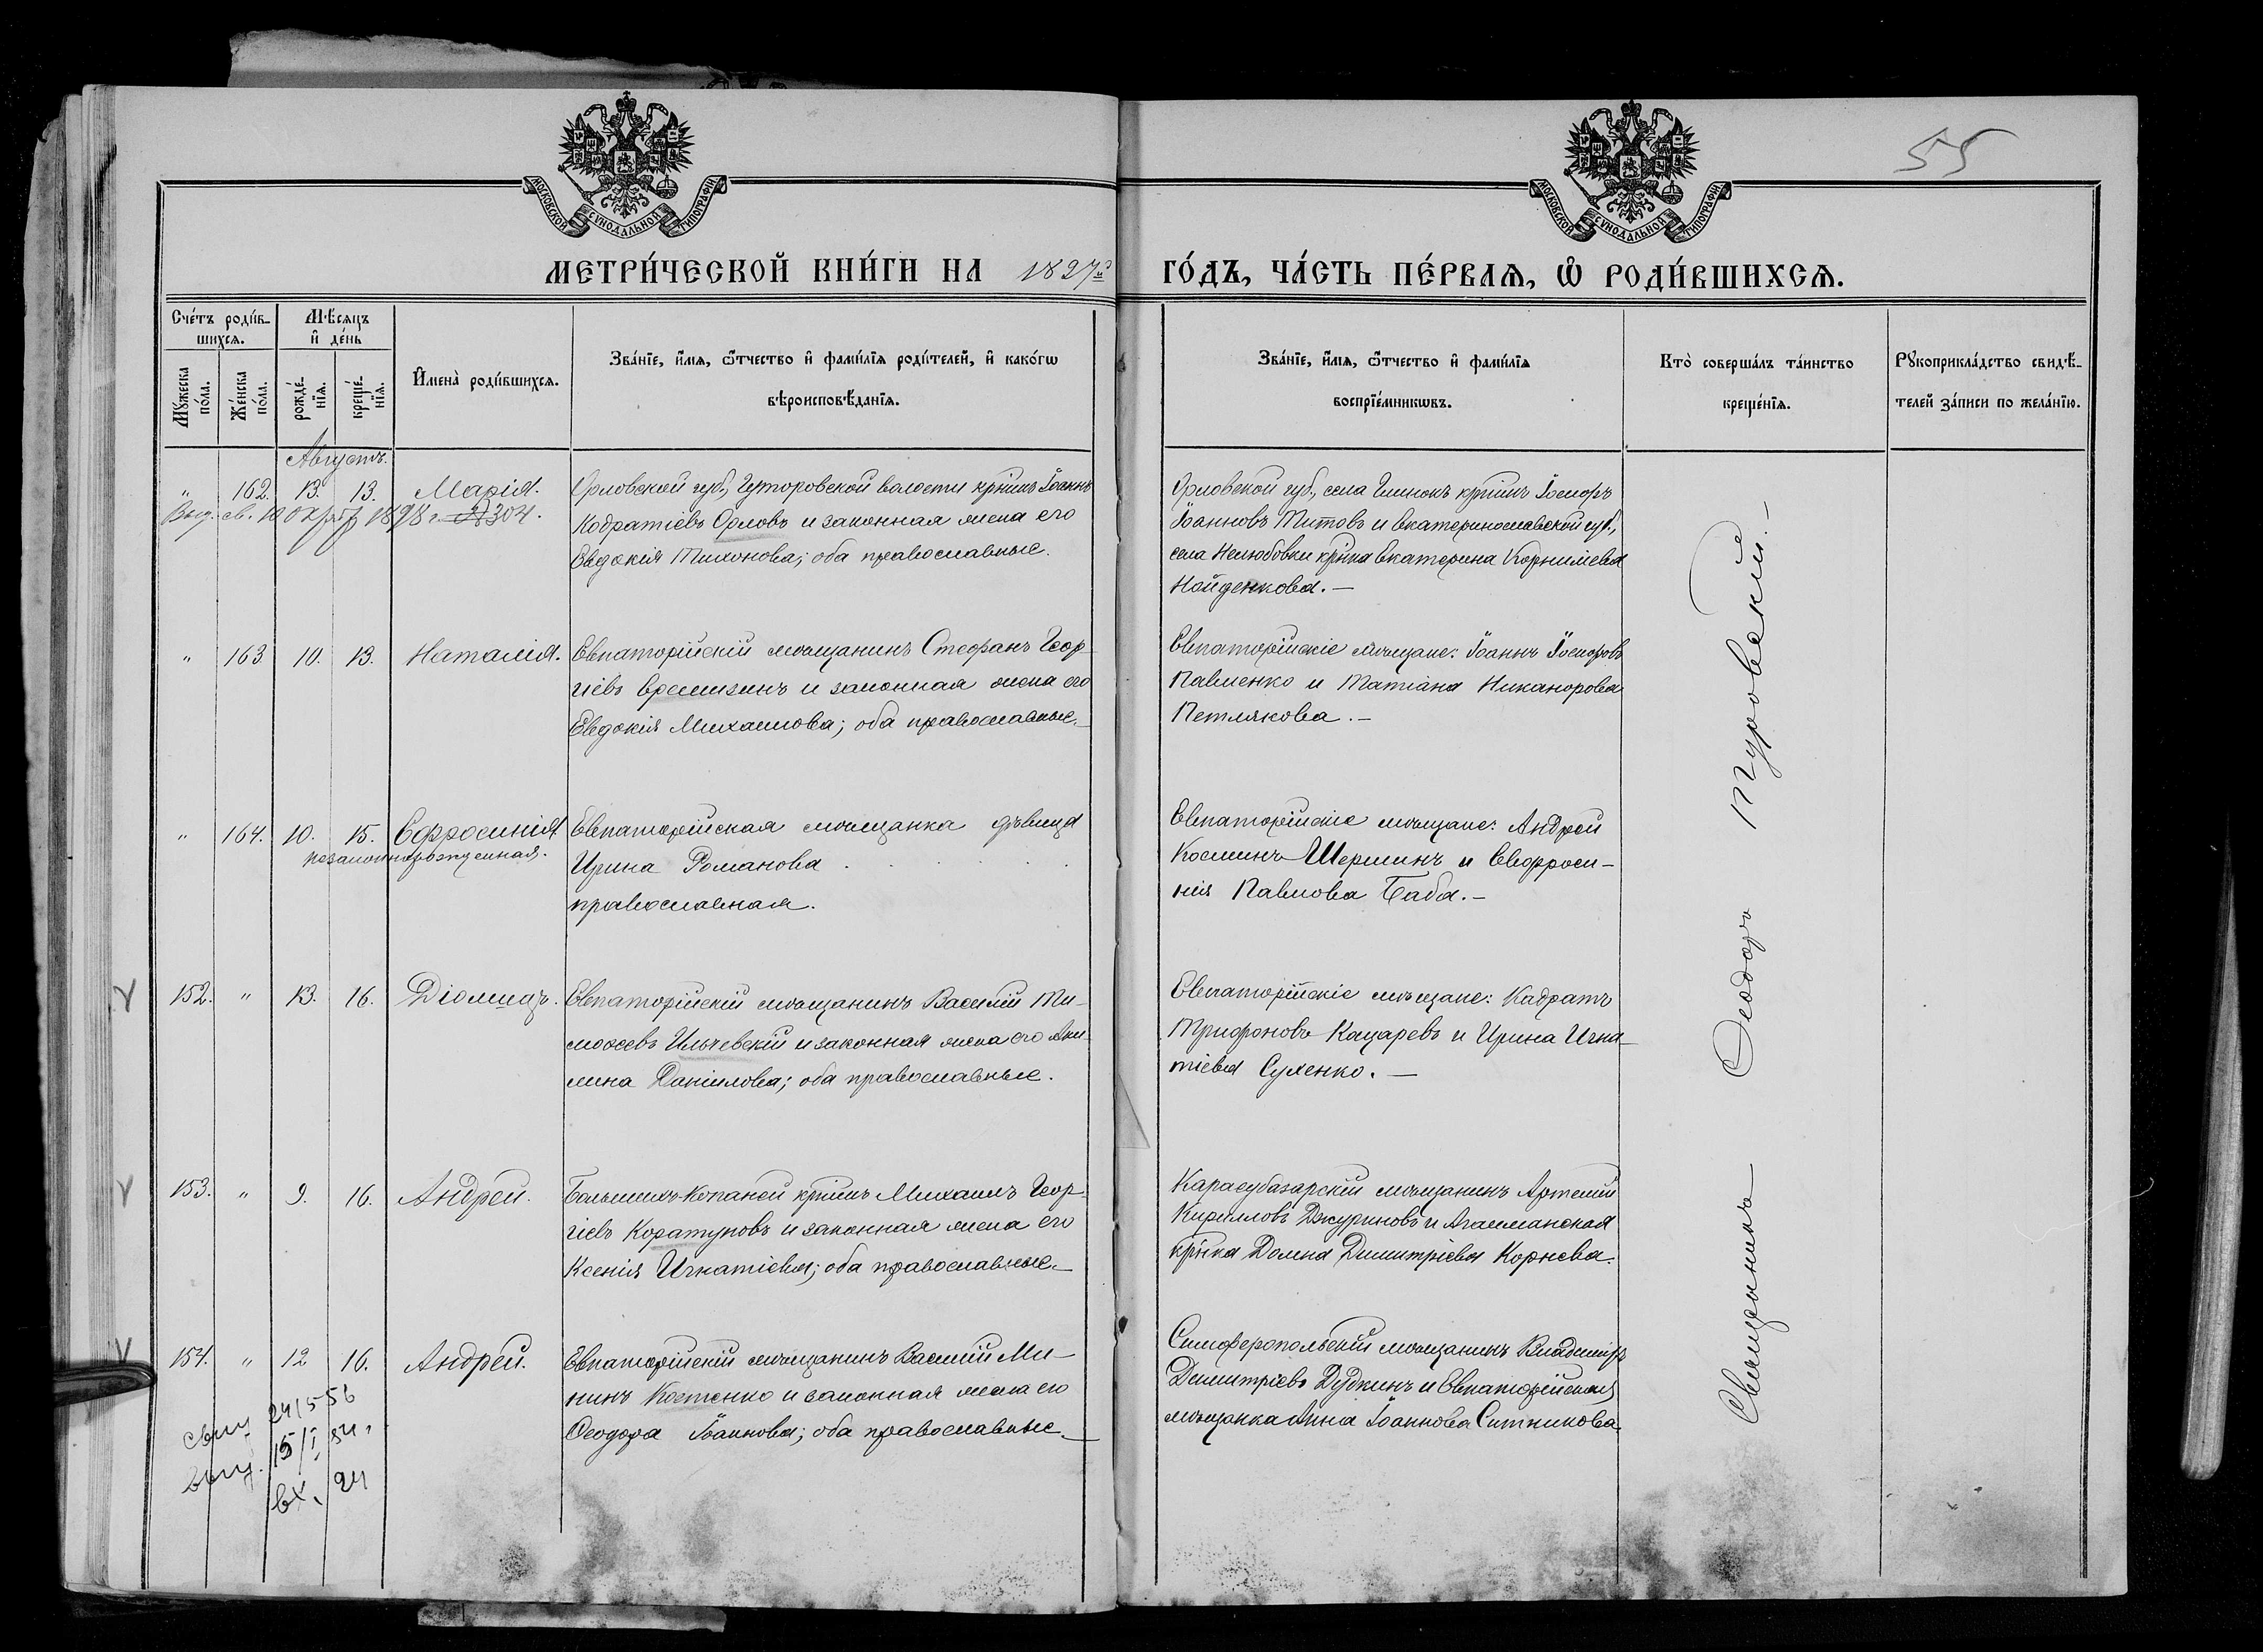 55
МОСКОВСКОЙ СУНОДАЛЬНОЙ ТИПОГРАФІИ
МОСКОВСКОЙ СУНОДАЛЬНОЙ ТИПОГРАФІИ
МЕТРИ́ЧЕСКОЙ КНИ́ГИ НА 1897й ГО́ДЪ, ЧА́СТЬ ПЕ́РВАѦ, Ѽ РОДИ́ВШИХСѦ.
Сче́тъ роди́в-
шихсѧ.
Мꙋ́жеска по́ла.
Же́нска по́ла.
Мѣ́сѧцъ и де́нь
рожде́-
нїѧ.
креще́-
нїѧ.
И҆мена̀ роди́вшихсѧ.
Зва́нїе, и҆́мѧ, ѻ҆́тчество и҆ фами́лїѧ роди́телей, и҆ како́гѡ
вѣроисповѣ́данїѧ.
Зва́нїе, и҆́мѧ, ѻ҆́тчество и҆ фами́лїѧ
воспрїе́мникѡвъ.
Кто̀ соверша́лъ та́инство
креще́нїѧ.
Рꙋкоприкла́дство свидѣ́-
телей за́писи по жела́нїю.
Августъ.
" 162. 13. 13. Марія.
Выд. св. 1898 г. № 304.
Орловской губ., Гуторовской волости крѣнинъ Іоаннъ
Кодратіевъ Орловъ и законная жена его
Евдокія Тихонова; оба православные.
Орловской губ., села крѣнинъ Іосифъ
Іоанновъ Титовъ и Екатеринославской губ.,
села Нелюбовки крѣнка Екатерина Корнилева
Найденкова.—
" 163 10. 13. Наталія.
Евпаторійскій мѣщанинъ Стефанъ Геор-
гіевъ Еремизинъ и законная жена его
Евдокія Михаилова; оба православные.
Евпаторійскіе мѣщане: Іоаннъ Іосифовъ
Павленко и Татіана Никанорова
Петлякова.—
" 164. 10. 15. Ефросинія
незаконнорожденная.
Евпаторійская мѣщанка дѣвица
Ирина Романова
православная.
Евпаторійскіе мѣщане: Андрей
Косминъ Шершинъ и Евфроси-
нія Павлова Баба.—
152. " 13. 16. Діомидъ.
Евпаторійскій мѣщанинъ Василій Ти-
мофеевъ Ильчевскій и законная жена его Аки-
лина Даніилова; оба православные.
Евпаторійскіе мѣщане: Кадратъ
Трифоновъ Кацаревъ и Ирина Игна-
тіева Сухенко.—
153. " 9. 16. Андрей.
Большихъ-Копаней крѣнинъ Михаилъ Геор-
гіевъ Коратуновъ и законная жена его
Ксенія Игнатіева; оба православные.
Карасубазарскій мѣщанинъ Артемій
Кирилловъ Джуриновъ и Агайманская
крѣнка Домна Димитріева Корнева.
154. " 12 16. Андрей.
Евпаторійскій мѣщанинъ Василій Ми-
нинъ Костенко и законная жена его
Ѳеодора Іоаннова; оба православные.
Симферопольскій мѣщанинъ Владиміръ
Димитріевъ Дудкинъ и Евпаторійская
мѣщанка Анна Іоаннова Ситникова.
24/5 56
выд. 15/I 54.
вх. 24
Священникъ Ѳеодоръ Туровскій.—